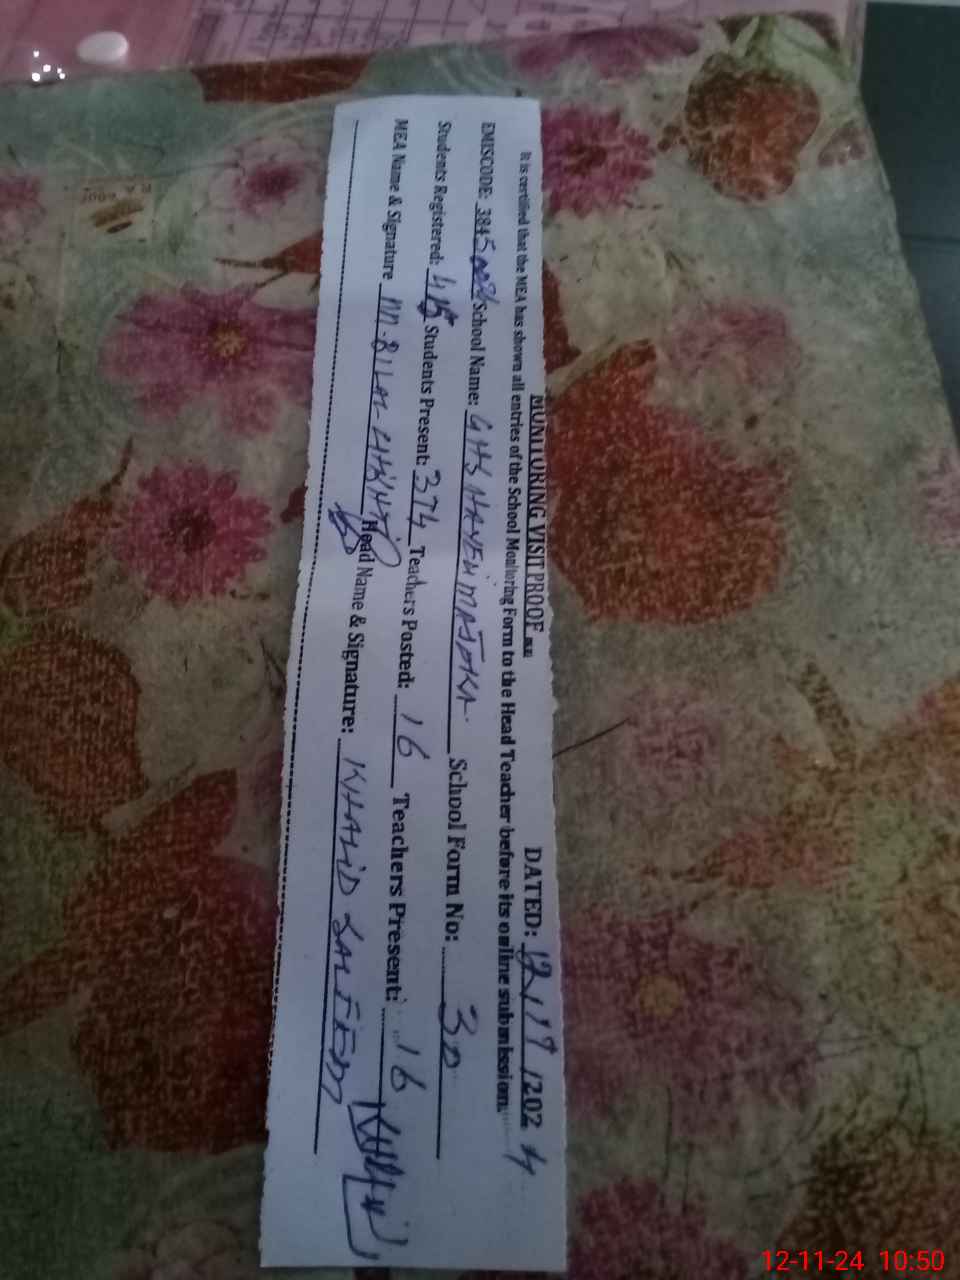 MONITORING VISIT PROOF
DATED: 12/11/2024
It is certified that the MEA has shown all entries of the School Monitoring Form to the Head Teacher before its online submission.
EMISCODE: School Name: GHS School Form No: 30
Students Registered: Students Present: 374 Teachers Posted: 16 Teachers Present: 16
MEA Name & Signature M. BILAL Head Name & Signature: KHALID SALEEM
12-11-24 10:50